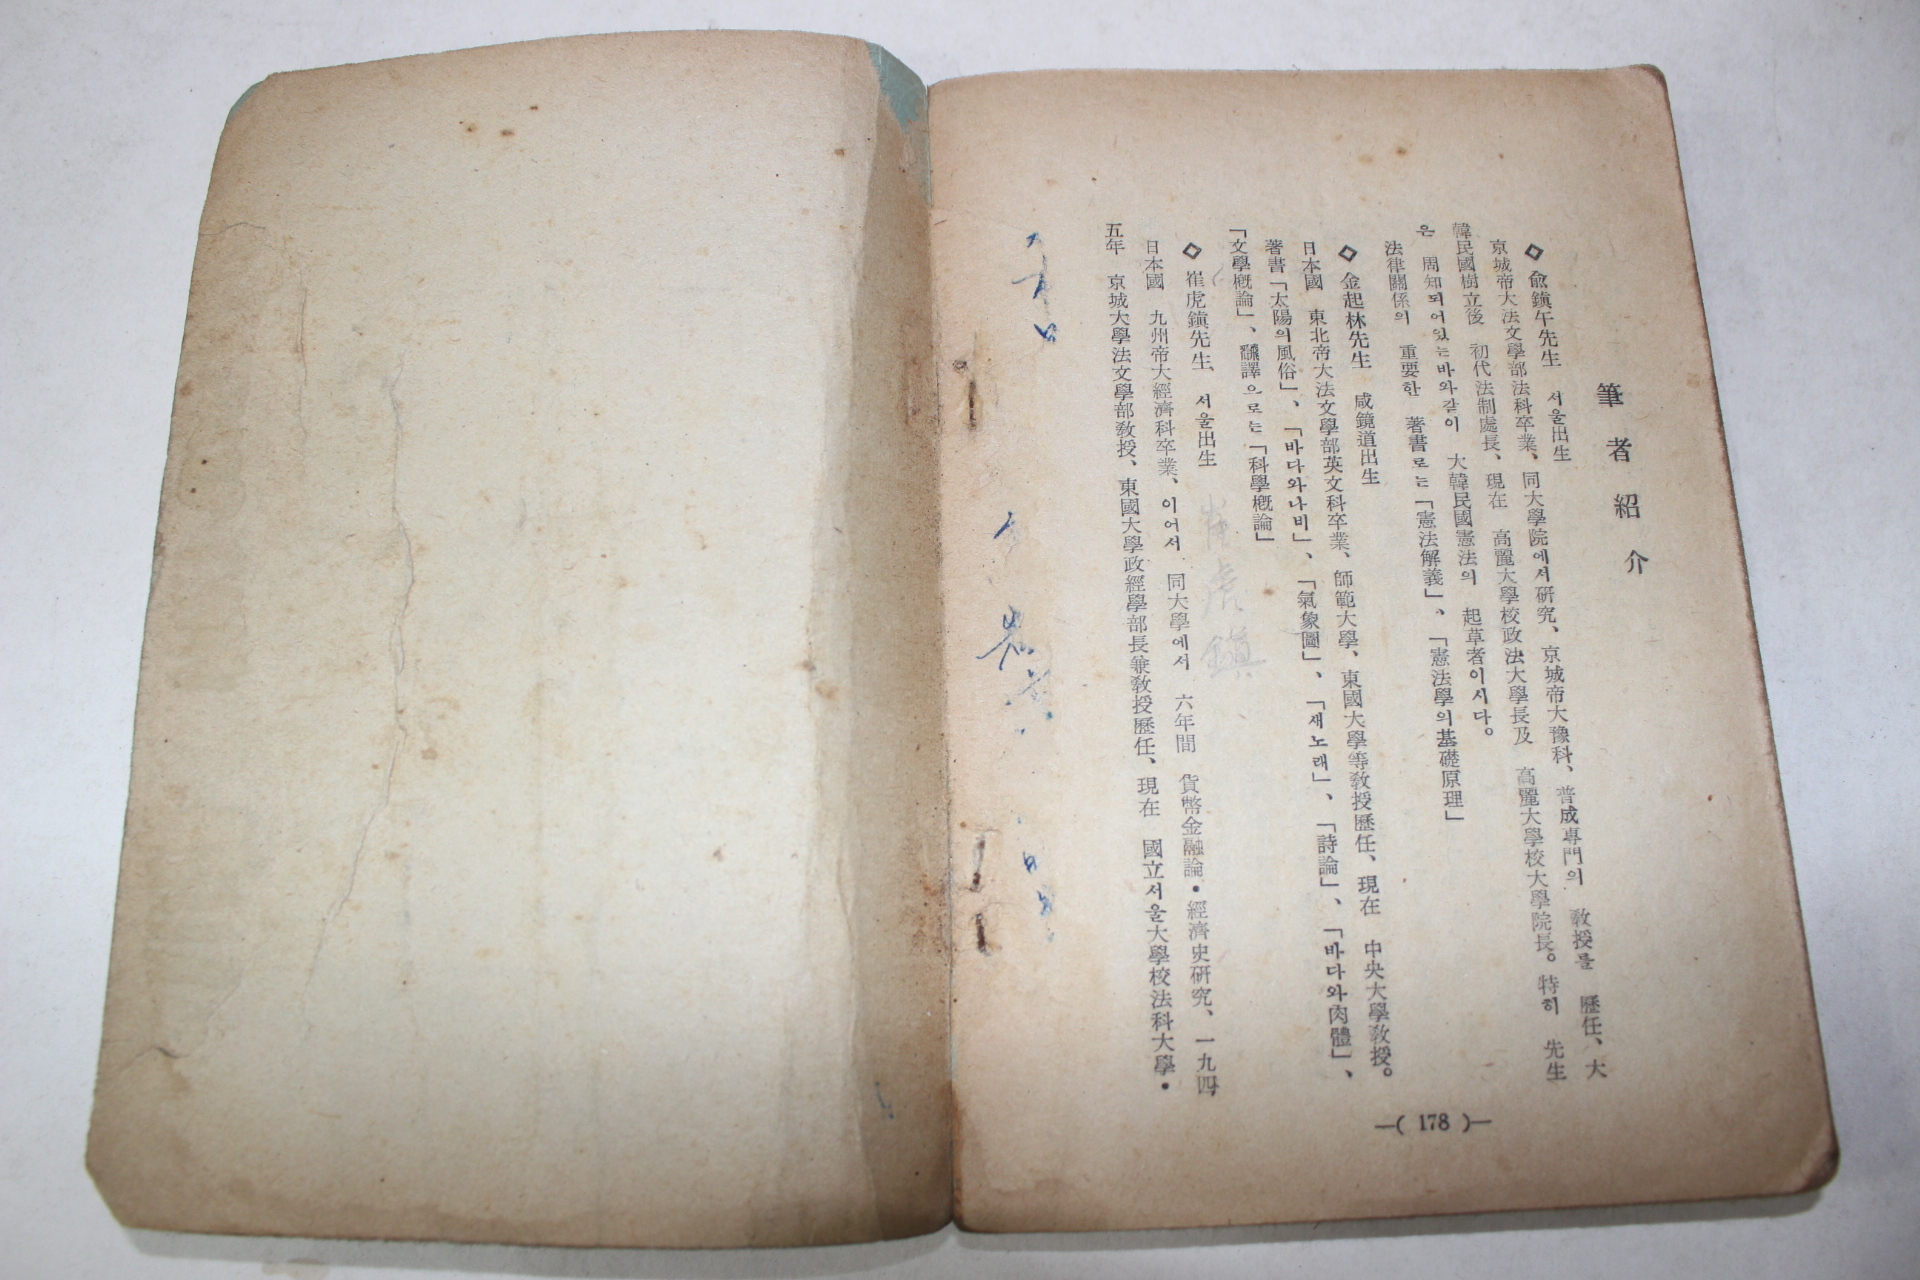 筆者紹介
◇ 兪鎭午先生 서울出生
京城帝大法文學部法科卒業、同大學院에서 硏究、京城帝大豫科、普成專門의 敎授를 歷任、大
韓民國樹立後 初代法制處長、現在 高麗大學校政法大學長及 高麗大學校大學院長。特히 先生
은 周知되어있는바와같이 大韓民國憲法의 起草者이시다。
法律關係의 重要한 著書로는「憲法解義」、「憲法學의基礎原理」
◇ 金起林先生 咸鏡道出生
日本國 東北帝大法文學部英文科卒業、師範大學、東國大學等敎授歷任、現在 中央大學敎授。
著書「太陽의風俗」、「바다와나비」、「氣象圖」、「새노래」、「詩論」、「바다와肉體」、
「文學槪論」、飜譯으로는「科學槪論」
◇ 崔虎鎭先生 서울出生
日本國 九州帝大經濟科卒業、이어서 同大學에서 六年間 貨幣金融論・經濟史硏究、一九四
五年 京城大學法文學部敎授、東國大學政經學部長兼敎授歷任、現在 國立서울大學校法科大學・
崔虎鎭
—( 178 )—